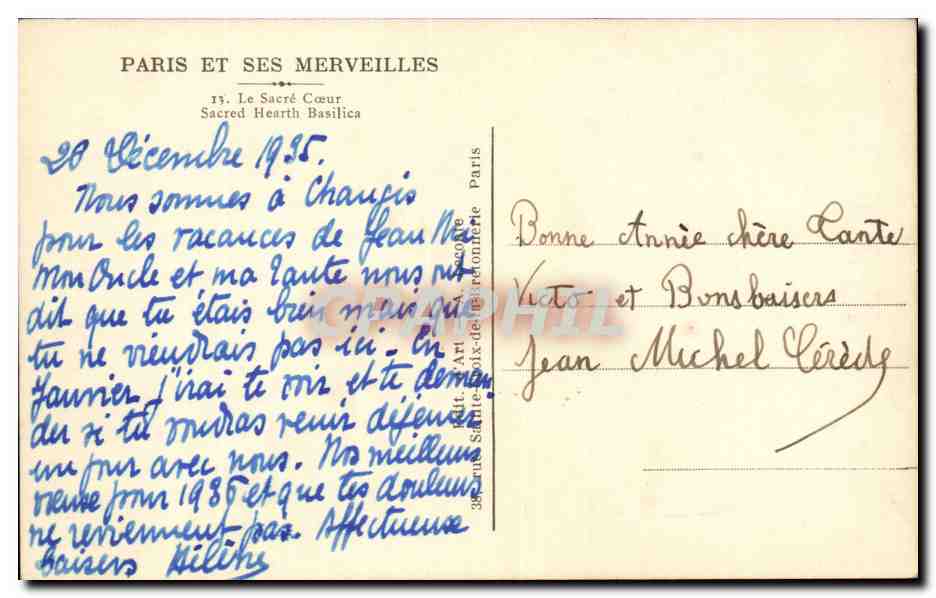 PARIS ET SES MERVEILLES
13. Le Sacré Cœur
Sacred Hearth Basilica
28 Décembre 1935.
Nous sommes à Changis
pour les vacances de Jean Mi.
Mon Oncle et ma tante nous ont
dit que tu étais bien mais que
tu ne viendrais pas ici. En
Janvier j'irai te voir et te deman
der si tu voudras venir déjeuner
un jour avec nous. Nos meilleurs
vœux pour 1936 et que tes douleurs
ne reviennent pas. Affectueux
baisers Hélène
Edit. d'Art A. Leconte
38, rue Sainte-Croix-de-la-Bretonnerie Paris
Bonne Année chère Tante
Victo et Bons baisers
Jean Michel Cérède
CPAPHIL